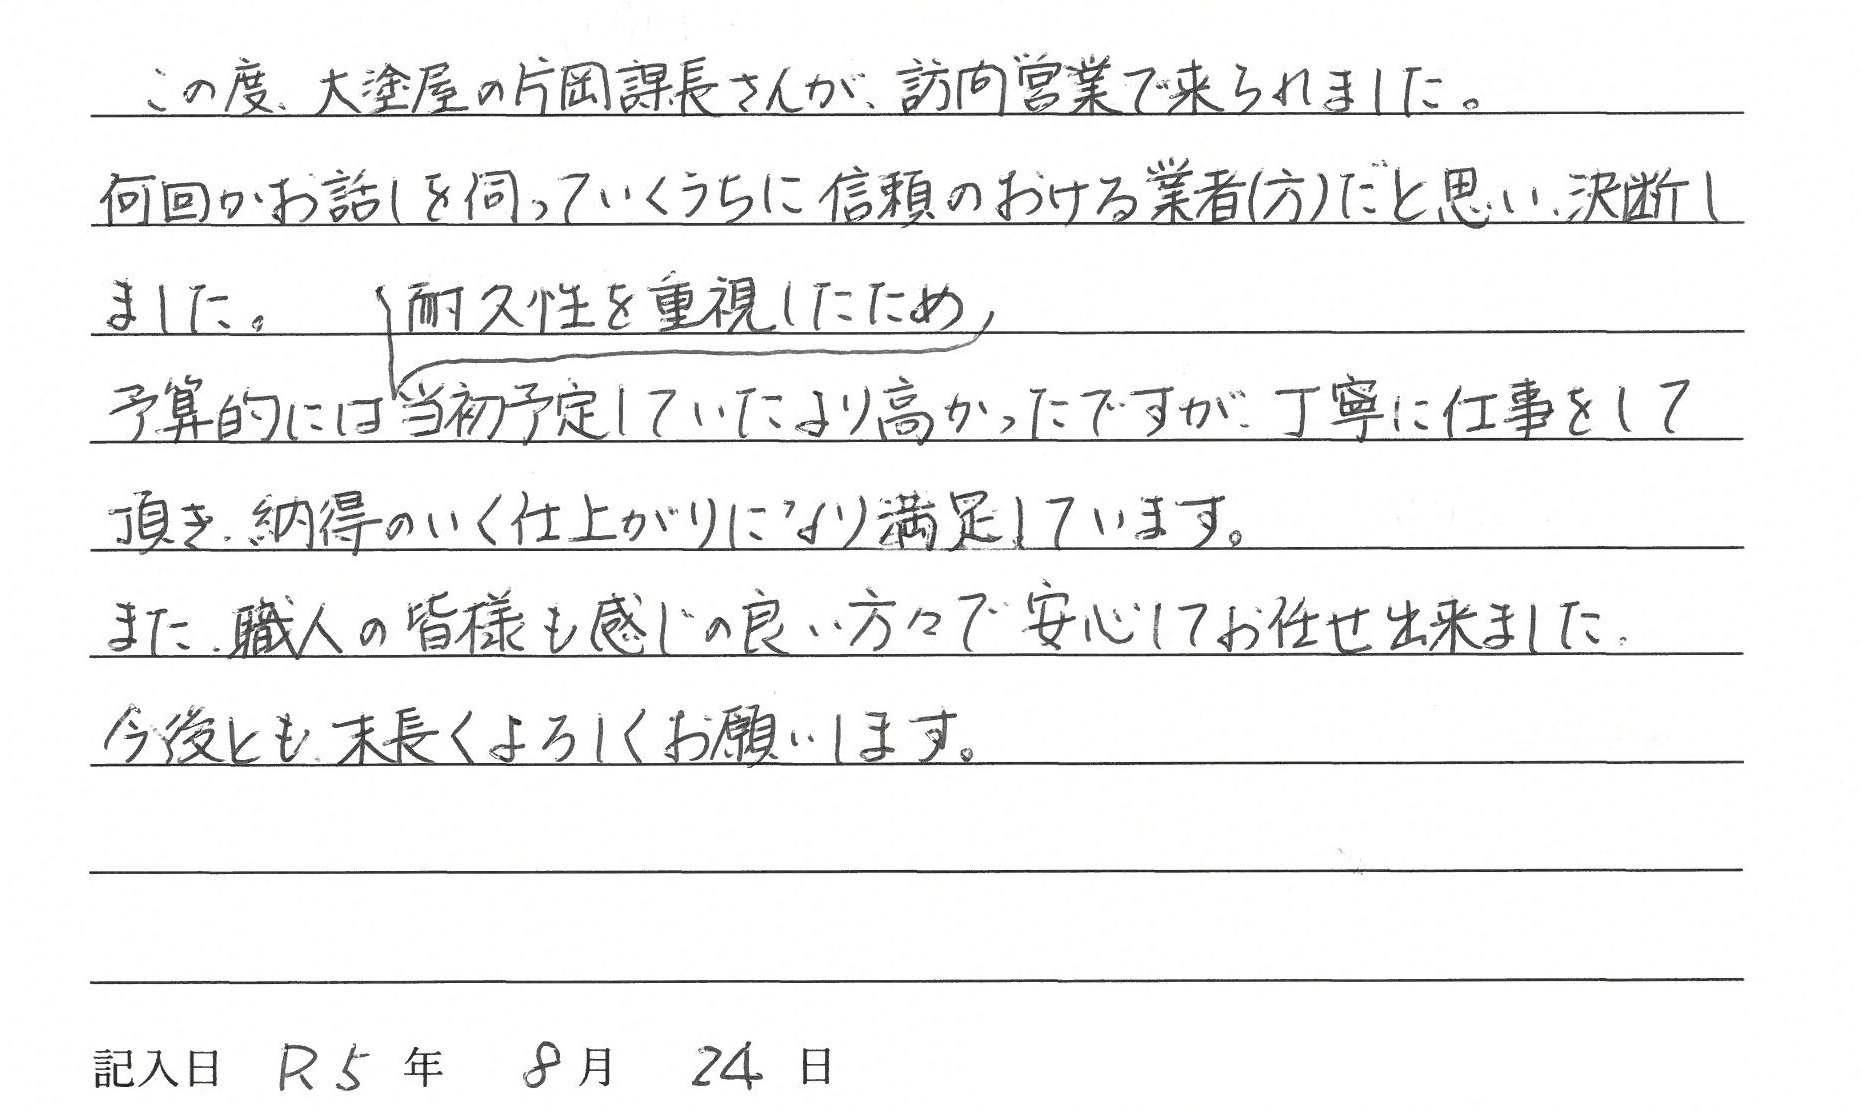 この度、大塗屋の片岡課長さんが、訪問営業で来られました。
何回かお話しを伺っていくうちに信頼のおける業者(方)だと思い、決断し
ました。
耐久性を重視したため
予算的には当初予定していたより高かったですが、丁寧に仕事をして
頂き、納得のいく仕上がりになり満足しています。
また、職人の皆様も感じの良い方々で安心してお任せ出来ました。
今後とも、末長くよろしくお願いします。
記入日 R5年 8月 24日